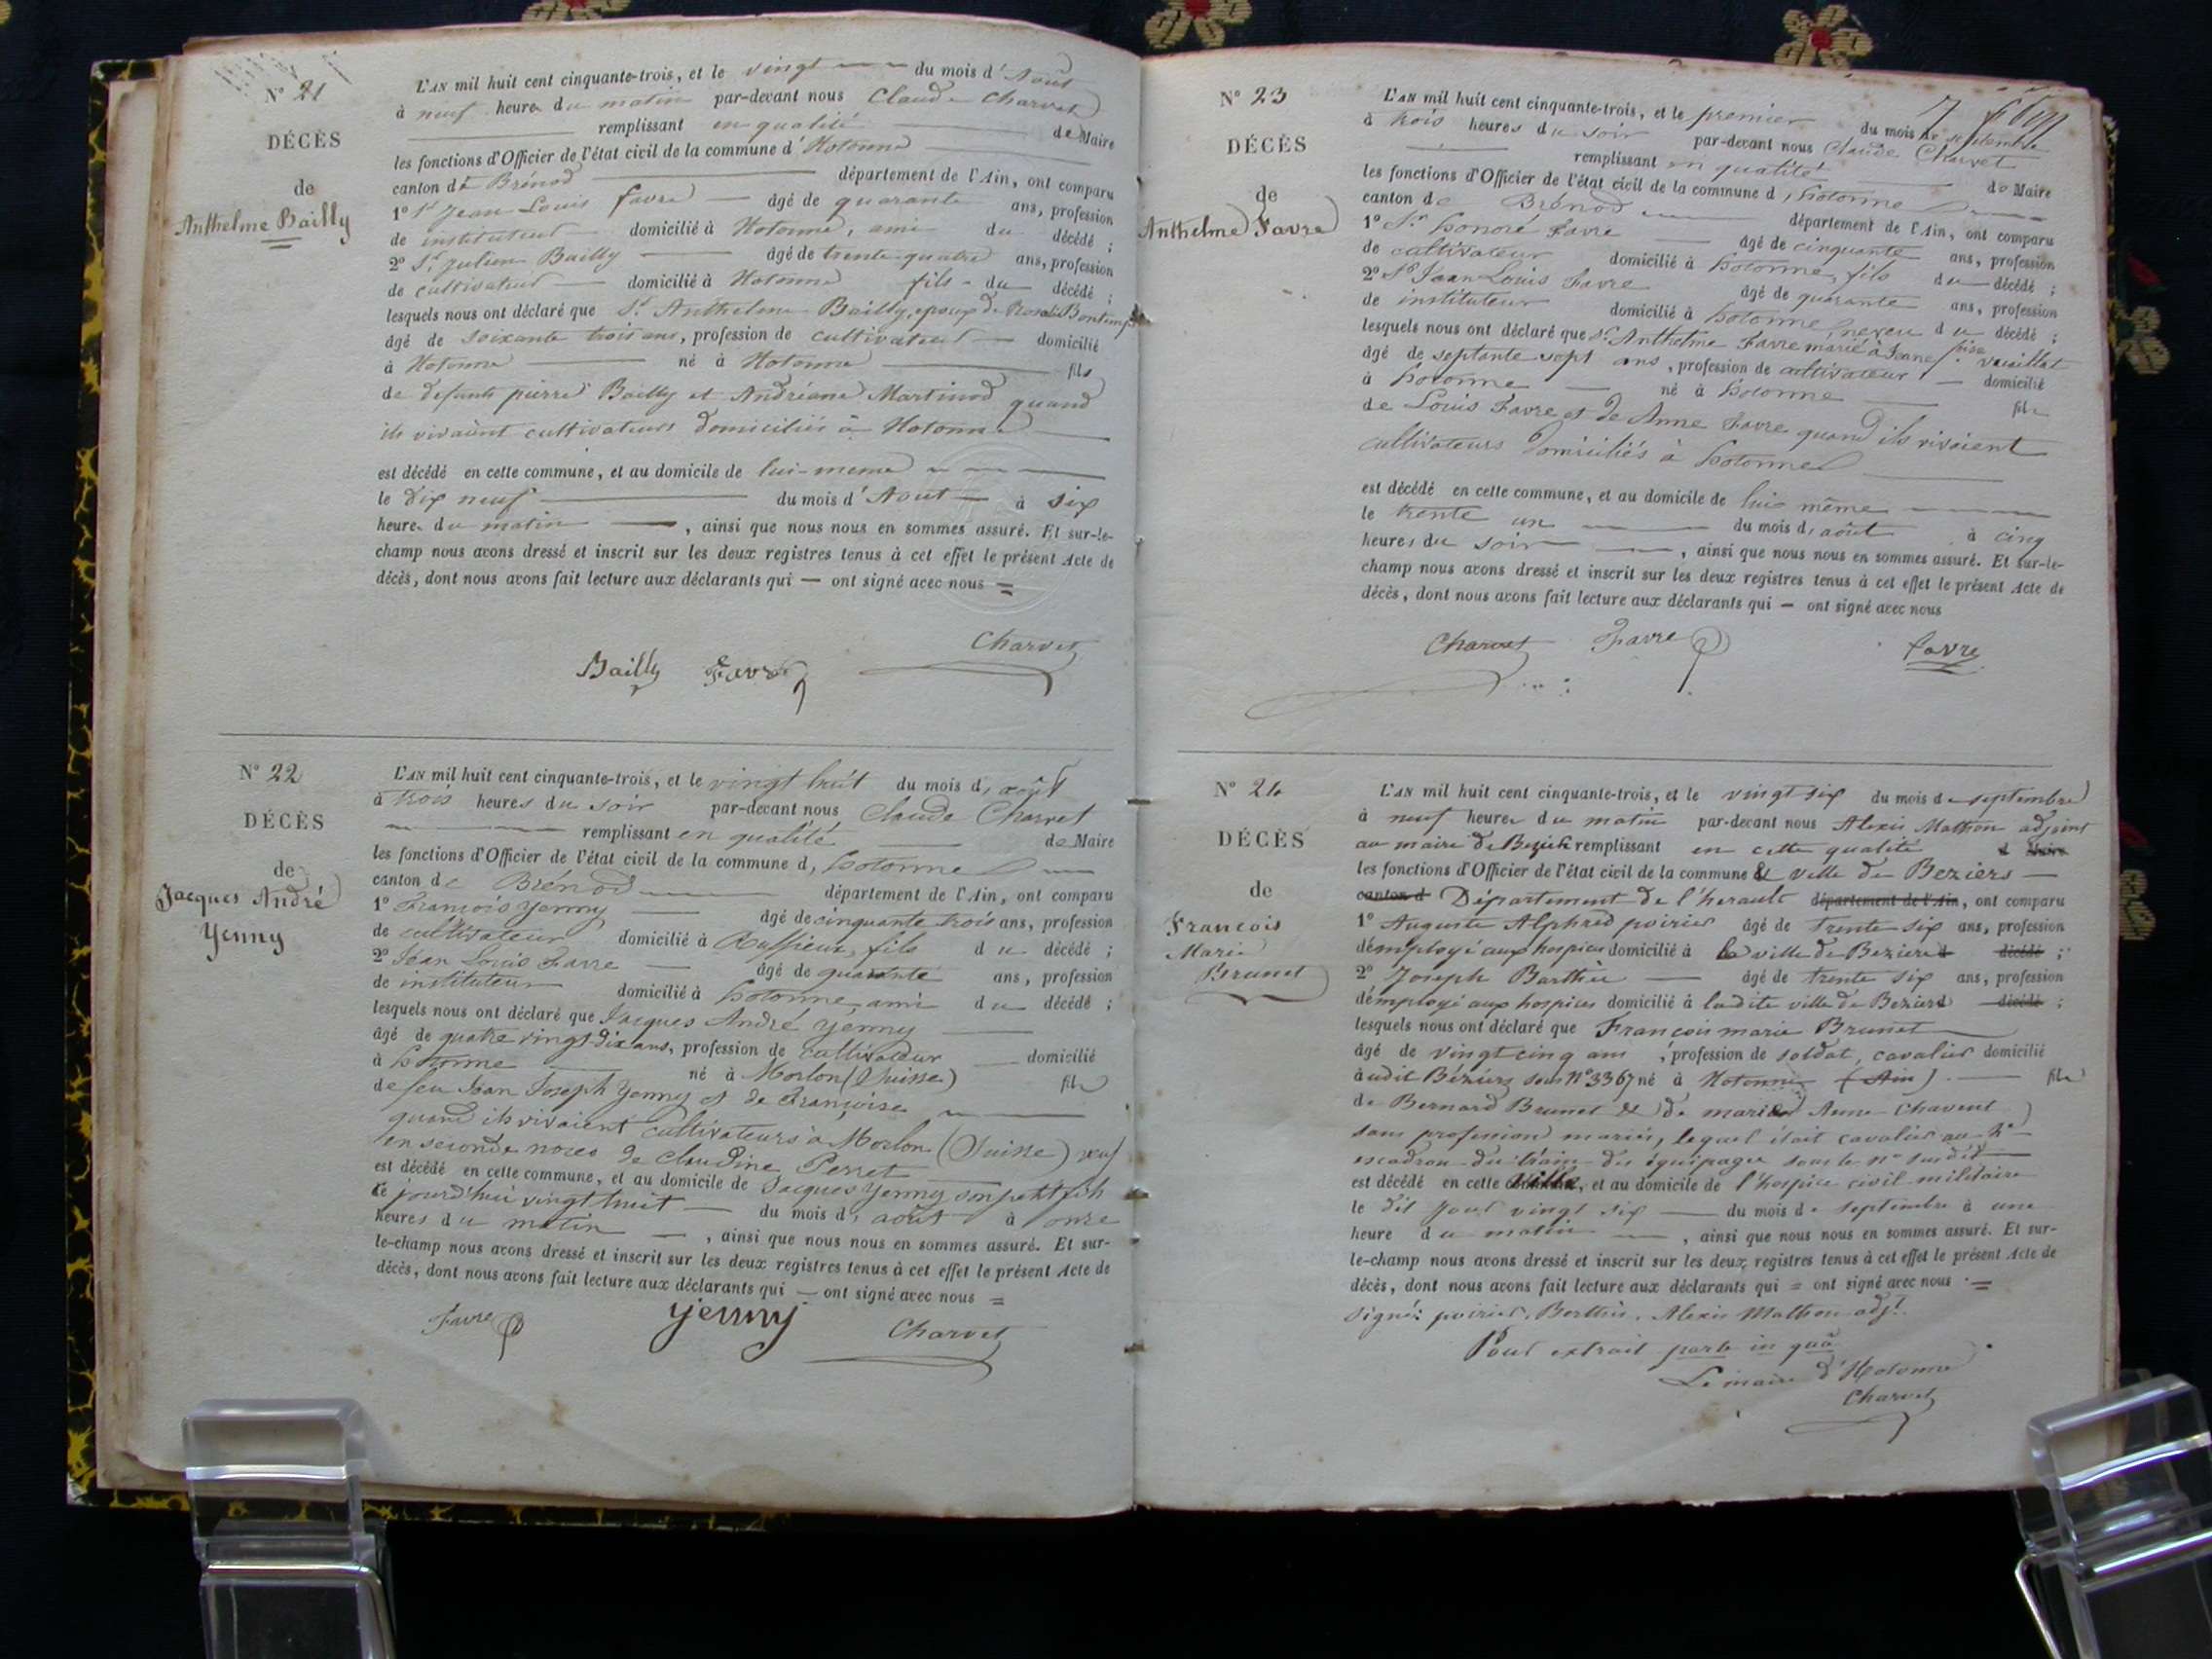 N° 21
DÉCÈS
de
Anthelme Bailly
L'AN mil huit cent cinquante-trois, et le vingt du mois d'Aout
à neuf heures du matin par-devant nous Claude Charvet
remplissant en qualité de Maire
les fonctions d'Officier de l'état civil de la commune d'Hotonne
canton de Brénod département de l'Ain, ont comparu
1° Sr Jean Louis favre âgé de quarante ans, profession
de instituteur domicilié à Hotonne, ami du décédé ;
2° Sr Julien Bailly âgé de trente-quatre ans, profession
de cultivateur domicilié à Hotonne fils du décédé ;
lesquels nous ont déclaré que Sr Anthelme Bailly, epoux de Rosalie Bontemps
âgé de soixante trois ans, profession de cultivateur domicilié
à Hotonne né à Hotonne fils
de defunts pierre Bailly et Andréane Martinod quand
ils vivaient cultivateurs domiciliés à Hotonne
est décédé en cette commune, et au domicile de lui-meme
le dix neuf du mois d'Aout à six
heures du matin , ainsi que nous nous en sommes assuré. Et sur-le-
champ nous avons dressé et inscrit sur les deux registres tenus à cet effet le présent Acte de
décès, dont nous avons fait lecture aux déclarants qui — ont signé avec nous =
Charvet
Bailly Favre
N° 22
DÉCÈS
de
Jacques André
Yenny
L'AN mil huit cent cinquante-trois, et le vingt huit du mois d, août
à trois heures du soir par-devant nous Claude Charvet
remplissant en qualité de Maire
les fonctions d'Officier de l'état civil de la commune d, hotonne
canton de Brénod département de l'Ain, ont comparu
1° François Yenny âgé de cinquante trois ans, profession
de cultivateur domicilié à Ruffieux, fils du décédé ;
2° Jean Louis Favre âgé de quarante ans, profession
de instituteur domicilié à hotonne, ami du décédé ;
lesquels nous ont déclaré que Jacques André Yenny
âgé de quatre vingt dix ans, profession de cultivateur domicilié
à hotonne né à Morlon (Suisse) fils
de feu Jean Joseph Yenny et de Françoise
quand ils vivaient cultivateurs à Morlon (Suisse) veuf
en seconde noces de Claudine Perret
est décédé en cette commune, et au domicile de Jacques Yenny son petit fils
ce jourd'hui vingt huit du mois d, août à onze
heures du matin , ainsi que nous nous en sommes assuré. Et sur-
le-champ nous avons dressé et inscrit sur les deux registres tenus à cet effet le présent Acte de
décès, dont nous avons fait lecture aux déclarants qui — ont signé avec nous =
Favre yenny Charvet
N° 23
DÉCÈS
de
Anthelme Favre
L'AN mil huit cent cinquante-trois, et le premier du mois de septembre
à trois heures du soir par-devant nous Claude Charvet
remplissant en qualité de Maire
les fonctions d'Officier de l'état civil de la commune d, hotonne
canton de Brénod département de l'Ain, ont comparu
1° Sr honoré Favre âgé de cinquante ans, profession
de cultivateur domicilié à hotonne, fils du décédé ;
2° Sr Jean Louis Favre âgé de quarante ans, profession
de instituteur domicilié à hotonne, neveu du décédé ;
lesquels nous ont déclaré que Sr Anthelme Favre marié à Jeane vuaillat
âgé de septante sept ans, profession de cultivateur domicilié
à hotonne né à hotonne fils
de Louis Favre et de Anne Favre quand ils vivoient
cultivateurs domiciliés à hotonne
est décédé en cette commune, et au domicile de lui même
le trente un du mois d, août à cinq
heures du soir , ainsi que nous nous en sommes assuré. Et sur-le-
champ nous avons dressé et inscrit sur les deux registres tenus à cet effet le présent Acte de
décès, dont nous avons fait lecture aux déclarants qui — ont signé avec nous
Charvet Favre favre
N° 24
DÉCÈS
de
François
Marie
Brunet
L'AN mil huit cent cinquante-trois, et le vingt six du mois de septembre
à neuf heures du matin par-devant nous Alexis Mathon adjoint
au maire de Beziers remplissant en cette qualité d Maire
les fonctions d'Officier de l'état civil de la commune & ville de Beziers
canton d Département de l'herault département de l'Ain, ont comparu
1° Auguste Alphred poirier âgé de trente six ans, profession
d'employé aux hospices domicilié à la ville de Beziers d décédé ;
2° Joseph Barthès âgé de trente six ans, profession
d'employé aux hospices domicilié à ladite ville de Beziers d décédé ;
lesquels nous ont déclaré que François marie Brunet
âgé de vingt cinq ans, profession de soldat, cavalier domicilié
audit Béziers sous N° 3367 né à Hotonnes (Ain) fils
de Bernard Brunet & de marie Anne Chavent
sans profession mariés, lequel était cavalier au 4e
escadron du train des équipages sous le n° susdit
est décédé en cette ville, et au domicile de l'hospice civil militaire
le dit jour vingt six du mois de septembre à une
heure du matin , ainsi que nous nous en sommes assuré. Et sur-
le-champ nous avons dressé et inscrit sur les deux registres tenus à cet effet le présent Acte de
décès, dont nous avons fait lecture aux déclarants qui = ont signé avec nous =
Signé: poirier, Berthès, Alexis Mathon adjt.
Pour extrait parte in quâ
Le maire d'Hotonne
Charvet